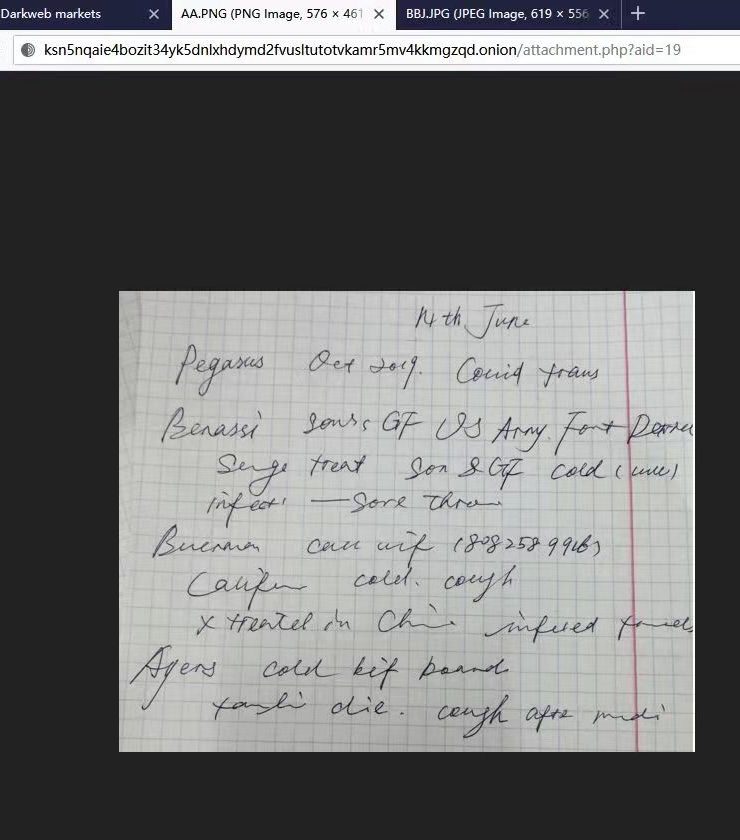 Darkweb markets
AA.PNG (PNG Image, 576 × 461
BBJ.JPG (JPEG Image, 619 × 556
ksn5nqaie4bozit34yk5dnlxhdymd2fvusltutotvkamr5mv4kkmgzqd.onion/attachment.php?aid=19
14th June
Pegasus Oct 2019. Covid trans
Benassi Son's GF US Army. Fort
Serge treat Son & GF cold
infect — Sore Thro
call wif
cold. cough
x treated in infused
cold bef board
die. cough after medi